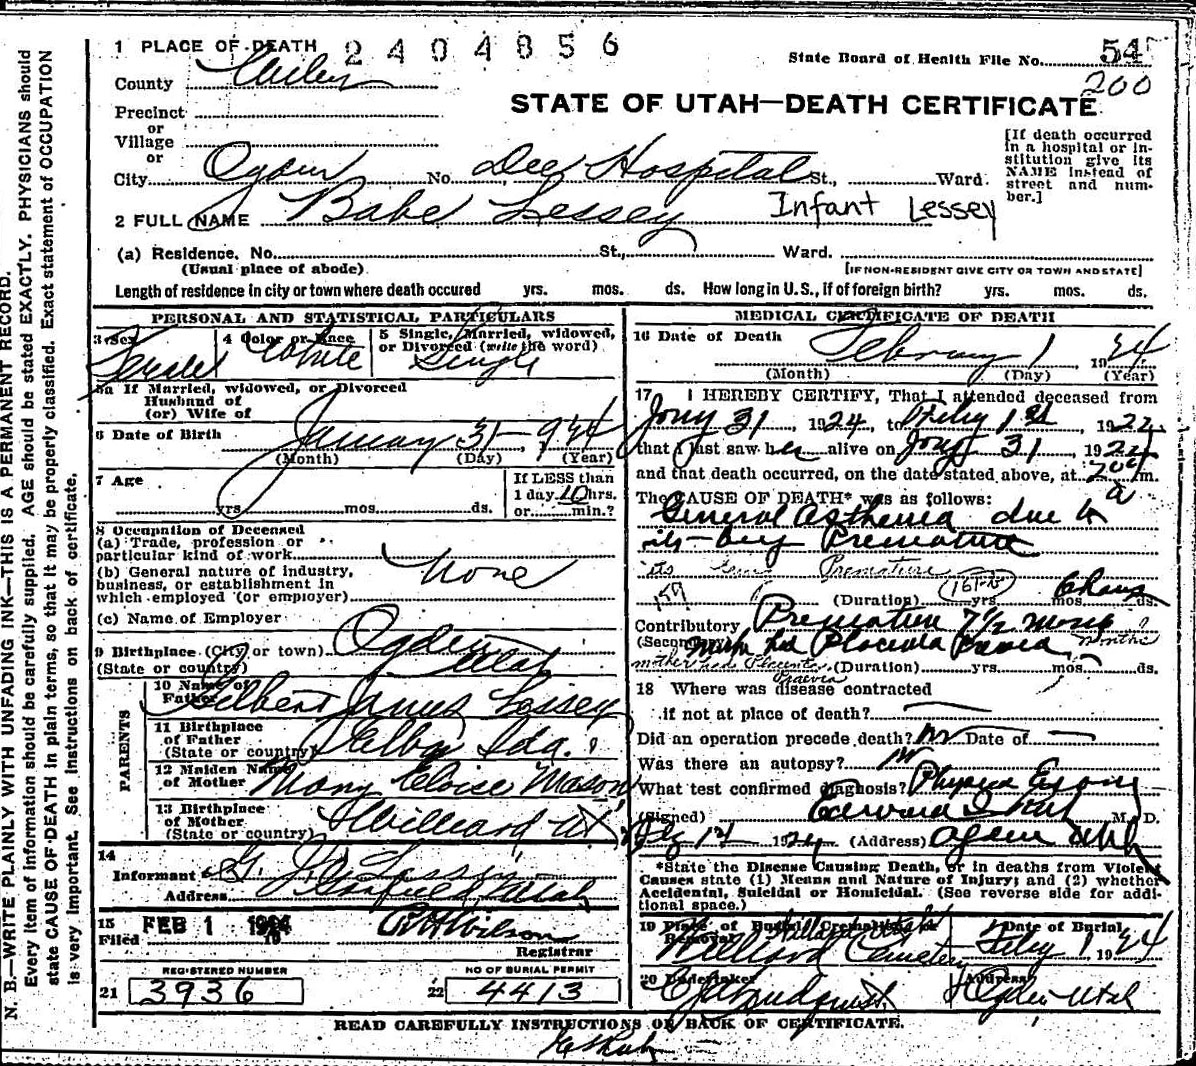 N. B.—WRITE PLAINLY WITH UNFADING INK—THIS IS A PERMANENT RECORD.
Every item of information should be carefully supplied. AGE should be stated EXACTLY. PHYSICIANS should
state CAUSE OF DEATH in plain terms, so that it may be properly classified. Exact statement of OCCUPATION
is very important. See instructions on back of certificate.
1 PLACE OF DEATH 2404856
State Board of Health File No. 54
200
County Weber
STATE OF UTAH—DEATH CERTIFICATE
Precinct
or
Village
or
City Ogden No. Dee Hospital St., Ward.
[If death occurred
in a hospital or in-
stitution give its
NAME instead of
street and num-
ber.]
2 FULL NAME Babe Lessey Infant Lessey
(a) Residence. No. St., Ward.
(Usual place of abode) [IF NON-RESIDENT GIVE CITY OR TOWN AND STATE]
Length of residence in city or town where death occured yrs. mos. ds. How long in U.S., if of foreign birth? yrs. mos. ds.
PERSONAL AND STATISTICAL PARTICULARS
3 Sex
4 Color or Race White
5 Single, Married, widowed,
or Divorced (write the word)
Single
5a If Married, widowed, or Divorced
Husband of
(or) Wife of
6 Date of Birth January 31— 924
(Month) (Day) (Year)
7 Age
yrs. mos. ds.
If LESS than
1 day 10 hrs.
or min.?
8 Occupation of Deceased
(a) Trade, profession or
particular kind of work
(b) General nature of industry,
business, or establishment in
which employed (or employer)
None
(c) Name of Employer
9 Birthplace (City or town) Ogden
(State or country) Utah
PARENTS
10 Name of
Father Gilbert James Lessey
11 Birthplace
of Father
(State or country) Elba Ida.
12 Maiden Name
of Mother Mary Eloise Mason
13 Birthplace
of Mother
(State or country) Willard Ut
14
Informant G. J.
Address Utah
15
Filed FEB 1 1924
19
R H Wilson
Registrar
REGISTERED NUMBER
21 3936
NO OF BURIAL PERMIT
22 4413
MEDICAL CERTIFICATE OF DEATH
16 Date of Death February 1 1924
(Month) (Day) (Year)
17 I HEREBY CERTIFY, That I attended deceased from
Jany 31, 1924, to Feby 1st, 192
that I last saw her alive on Jany 31 192
and that death occurred, on the date stated above, at 200 m.
a
The CAUSE OF DEATH* was as follows:
General Asthenia due to
its being Premature
its being Premature
159 161-b
(Duration) yrs. mos. ds.
Contributory Premature 7 1/2 mons
months
(Secondary) Mother had Placenta Previa
mother had Placenta Praevia (Duration) yrs. mos. ds.
18 Where was disease contracted
if not at place of death?
Did an operation precede death? No Date of —
Was there an autopsy? No
What test confirmed diagnosis?
(Signed) Edward I. M. D.
192 (Address) Ogden Utah
*State the Disease Causing Death, or in deaths from Violent
Causes state (1) Means and Nature of Injury; and (2) whether
Accidental, Suicidal or Homicidal. (See reverse side for addi-
tional space.)
19 Place of Burial, Cremation or
Removal
Willard Utah
Willard Cemetery
Date of Burial
Feby 1 1924
20 Undertaker
Address
Ogden Utah
READ CAREFULLY INSTRUCTIONS ON BACK OF CERTIFICATE.